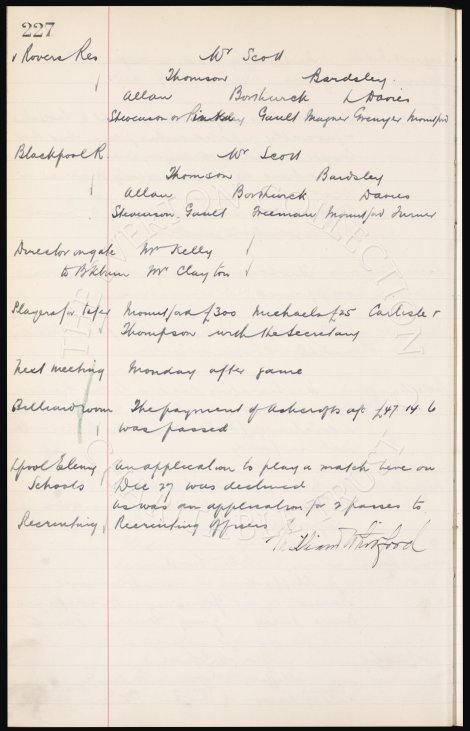 227
v Rovers Res Mr Scott
Thomson Bardsley.
Allan Borthwick L Davies
Stevenson or Gault Magner Grenyer Mountford
Blackpool R. Mr Scott
Thomson Bardsley
Allan Borthwick Davies
Stevenson Gault Freeman Mountford Turner
Director on gate Mr Kelly
to B'kburn Mr Clayton
Players for Tsfer Mountford £300 Michaels £25 Carlisle &
Thompson with the Secretary
Next meeting Monday after game
Billiard room The payment of Ashcrofts a/c £47.14.6
was passed
Lpool Elemy An application to play a match here on
Schools Dec 27 was declined
as was an application for 2 passes to
Recruiting Recruiting Officers
THE EVERTON COLLECTION